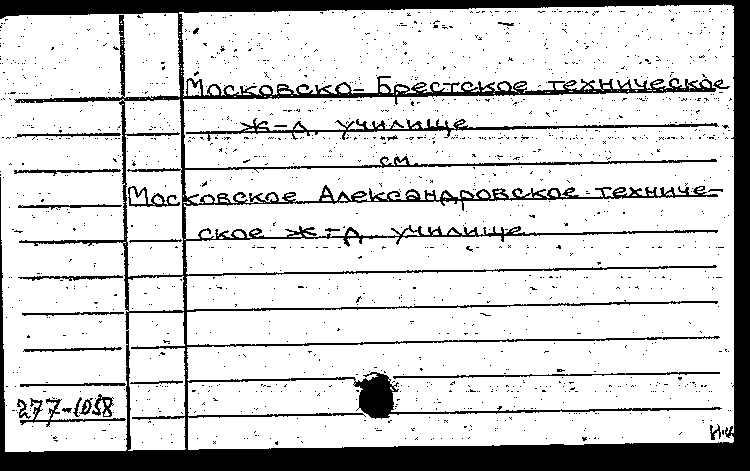 Московско-Брестское техническое
ж-д. училище
см.
Московское Александровское техниче-
ское ж-д училище
277-1058